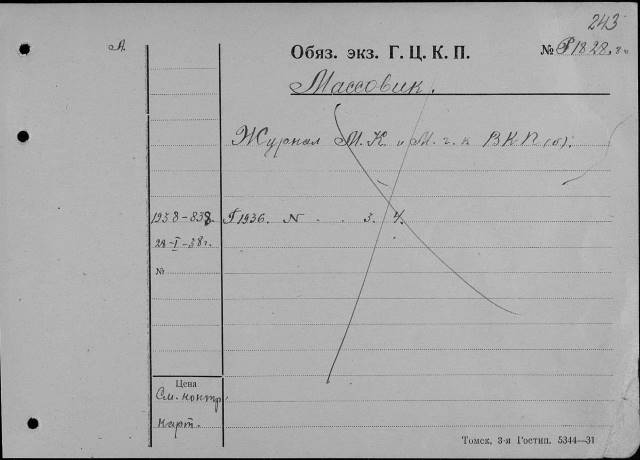 243
А.
Обяз. экз. Г. Ц. К. П.
№ Р1828.
Массовик.
Журнал М. К. и М. г. к ВКП(б).
1938-838. 1936. N . . 3. 4.
28-I-38г.
№
Цена
См. контр.
карт.
Томск, 3-я Гостип. 5344—31